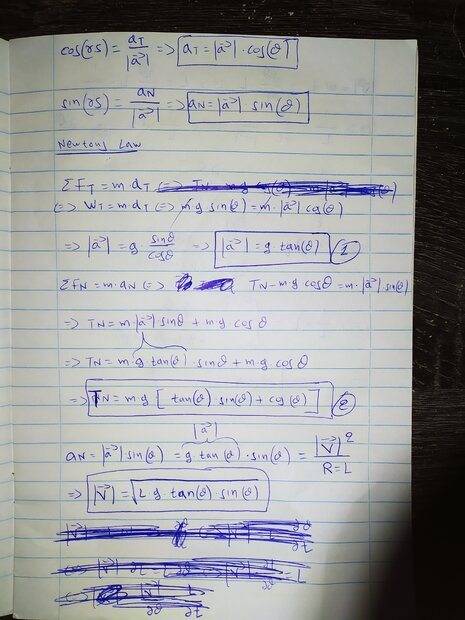 cos(rs) = aT / |a⃗| => aT = |a⃗| · cos(θ)
sin(rs) = aN / |a⃗| => aN = |a⃗| sin(θ)
Newtons Law
ΣFT = m·aT
(=> WT = m·aT (=> m·g sin(θ) = m·|a⃗| cos(θ)
=> |a⃗| = g sinθ / cosθ => |a⃗| = g tan(θ) 1
ΣFN = m·aN (=> TN - m·g cosθ = m·|a⃗| sin(θ)
=> TN = m·|a⃗|·sinθ + m g cosθ
=> TN = m·g tan(θ) · sinθ + m·g cosθ
=> TN = m·g [ tan(θ) sin(θ) + cos(θ) ] 2
|a⃗|
aN = |a⃗| sin(θ) = g tan(θ) · sin(θ) = |V⃗|² / R=L
=> |V⃗| = √L g tan(θ) sin(θ)